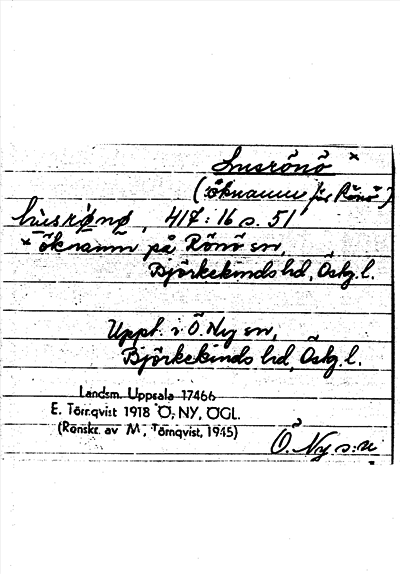 Lusrönö ×
(öknamn för Rönö)
lùsrø̀nø̀, 417:16 s. 51
× öknamn på Rönö sn,
Björkekinds hd, Östg. l.
Uppt. i Ö. Ny sn,
Björkekinds hd, Östg. l.
Landsm. Uppsala 17466
E. Törnqvist 1918 Ö. NY, ÖGL.
(Renskr. av M. Törnqvist, 1945)
Ö. Ny s:n